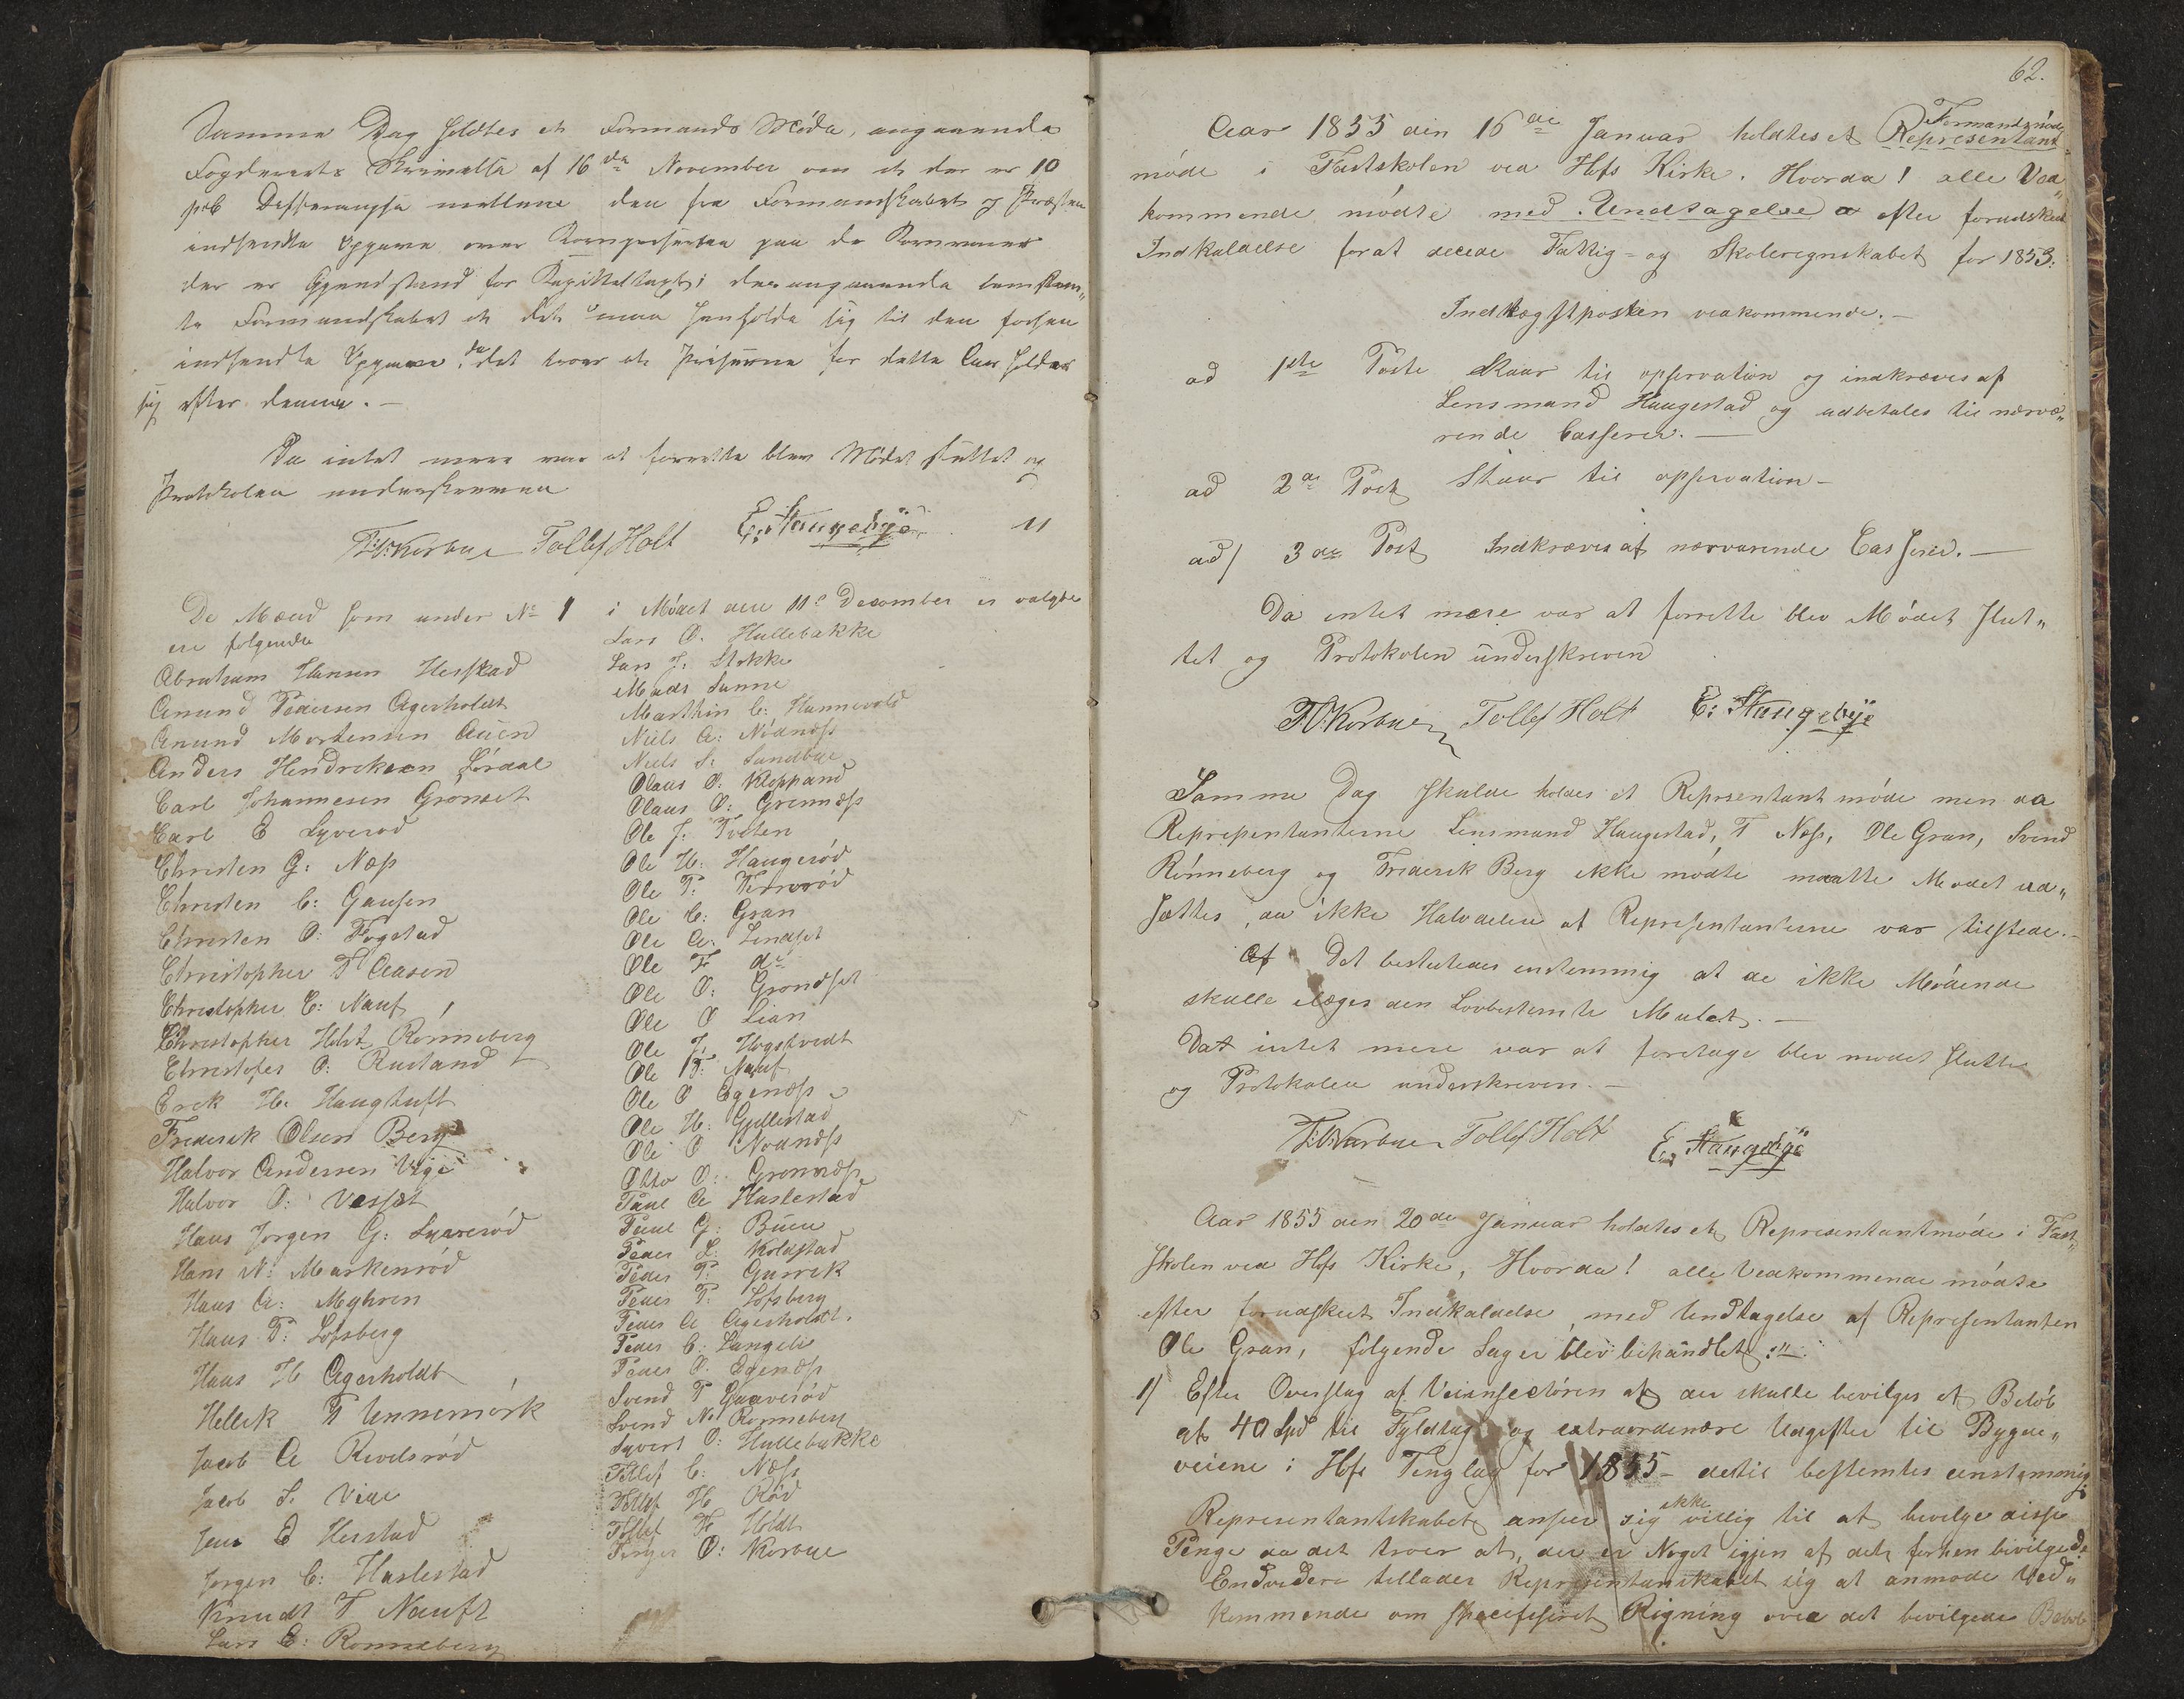 Samme Dag holdtes et Formands Møde, angaaende
Fogderiets Skrivelse af 16de November om at der er 10
mellem den fra Formandskabet og Præsten
indsendte Opgave over Kornpriserne paa de Kornvarer
der er Gjendstand for Kapitelstaxt; derangaaende bemærk„
te Formandskabet at det maa henholde sig til den forhen
indsendte Opgave, da det troer at Priserne for dette Aar holder
sig efter denne. —
Da intet mere var at forrette blev Mødet sluttet og
Protokolen underskreven
Korbue Tollef Holt E: Haugebye 11
De Mænd som under No 1 i Mødet den 11te December er valgte
ere følgende
Abraham Hansen Hesstad
Amund Pedersen Agerholdt
Anund Mortensen Auen
Anders Hendreksen Sørdal
Carl Johannesen Grønset
Carl E Syverød
Christen G: Næss
Christen C: Gausen
Christen O: Fogstad
Christopher T Aasen
Christopher C: Nauf
Christopher Holst Rønneberg
Christofer O: Rustand
Erek H. Haughuft
Frederik Olsen Berg
Halvor Andersen Vige
Halvor O: Vasset
Hans Jørgen G: Syverød
Hans N: Markerød
Hans A: Myhren
Hans P: Løfsberg
Hans H Agerholdt
Hellek T Unnemørk
Jacob A Revelsrød
Jacob S. Viue
Jens E Herstad
Jørgen C: Haslestad
Knudt T Nauft
Lars E: Ronneberg
Lars O. Hullebakke
Lars J. Stokke
Mads Sunne
Marthin C: Hannevold
Niels A: Nøanæss
Niels S. Sundbye
Olaus O. Kloppand
Olaus O: Grennæss
Ole J: Tveten
Ole H: Haugerød
Ole P:
Ole C: Gran
Ole A: Lindset
Ole F do
Ole O: Grøndset
Ole O Lian
Ole J. Hogstvedt
Ole T: Nauf
Ole O Egenæss
Ole H: Gullestad
Ole O Noanæss
Otto O: Gronnæss
Paul A Haslestad
Paul G: Buen
Peder L: Koldstad
Peder P: Gunrek
Peder P: Løfsberg
Peder A Agerholdt.
Peder C: Langeli
Peder O. Egenæss
Svend T Guaverød
Svend N. Ronneberg
Syvert O: Hullebakke
Tollef C: Næss
Tollef H Rød
Tollef K Holdt
Torger O: Korbue
62.
Formandsmøde
Aar 1855 den 16de Januar holdtes et Representant„
møde i Fastskolen ved Hofs Kirke. Hvorda! alle Ved„
kommende mødte med Undtagelse a efter forudskeet
Indkaldelse forat decede Fattig- og Skoleregnskabet for 1853:
Indtægtsposten vedkommende. —
ad 1ste Poste Staar til opservation og indkræves af
Lensmand Haugestad og udbetales til nærvæ„
rende Casserer. —
ad 2de Post Staar til opservation —
ad/ 3de Post Indkræves af nærværende Casserer. —
Da intet mere var at forrette blev Mødet slut„
tet og Protokolen underskreven
Korbue Tollef Holt E: Haugebye
Samme Dag skulde holdes et Represntant møde men da
Representanterne Lensmand Haugestad, T Næss, Ole Gran, Svend
Rønneberg og Frederik Berg ikke mødte maatte Mødet ud„
sættes, da ikke Halvdelen af Representanterne var tilstede. —
Af Det besluttedes enstemmig at de ikke Mødende
skulle ilægges den Lovbestemte Mulct. —
Dat intet mere var at foretage blev mødet slutte
og Protokolen underskreven. —
Korbue Tollef Holt E: Haugebye
Aar 1855 den 20de Januar holdtes et Representantmøde i Fast„
skolen ved Hofs Kirke, Hvorda! alle Vedkommende mødte
efter forudskeet Indkaldelse, med Undtagelse af Representanten
Ole Gran, følgende Sager blev behandlet:
1/ Efter Overslag af Veiinsectøren at der skulle bevilges et Beløb
af 40 Spd til Fyldtag og extraordenære Udgifter til Bygde„
veiene i Hofs Tinglag for 1855 — dertil bestemtes eenstemmig
ikke
Representantskabet anseer sig villig til at bevilge disse
Penge da det troer at, der er Noget igjen af det forhen bevilgede.
Endvedere tillader Representanskabet sig at anmode Ved„
kommende om specefeseret Rigning over det bevilgede Beløb